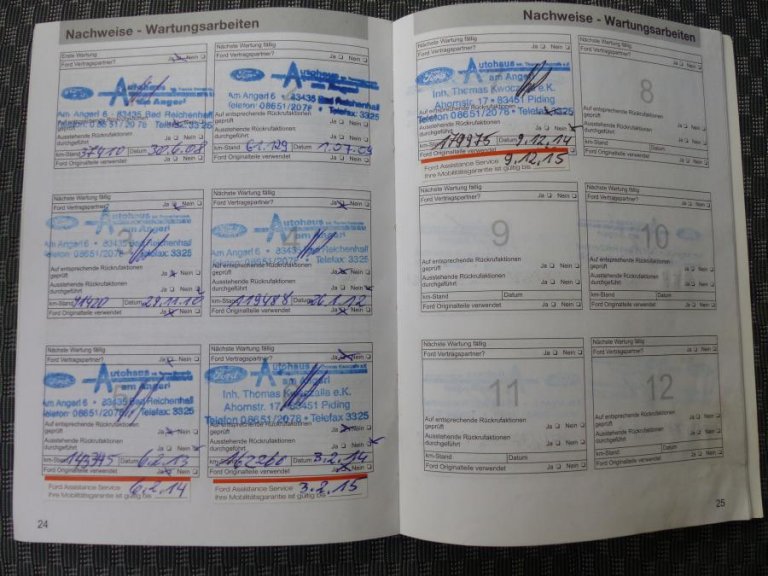 Nachweise - Wartungsarbeiten
Erste Wartung
Ford Vertragspartner? Ja Nein
Ford Autohaus
am Angerl
Am Angerl 6 • 83435 Bad Reichenhall
Telefon 08651/2078 • Telefax 3325
Auf entsprechende Rückrufaktionen
geprüft Ja Nein
Ausstehende Rückrufaktionen
durchgeführt Ja Nein
km-Stand 37410 Datum 30.6.08
Ford Originalteile verwendet Ja Nein
Nächste Wartung fällig
Ford Vertragspartner? Ja Nein
Ford Autohaus
am Angerl
Am Angerl 6 • 83435 Bad Reichenhall
Telefon: 08651/2078 • Telefax 3325
Auf entsprechende Rückrufaktionen
geprüft Ja Nein
Ausstehende Rückrufaktionen
durchgeführt Ja Nein
km-Stand 61.129 Datum 1.07.09
Ford Originalteile verwendet Ja Nein
Nächste Wartung fällig
Ford Vertragspartner? Ja Nein
3
Ford Autohaus
am Angerl
Am Angerl 6 • 83435 Bad Reichenhall
Telefon: 08651/2078 • Telefax 3325
Auf entsprechende Rückrufaktionen
geprüft Ja Nein
Ausstehende Rückrufaktionen
durchgeführt Ja Nein
km-Stand Datum 29.11.10
Ford Originalteile verwendet Ja Nein
Nächste Wartung fällig
Ford Vertragspartner? Ja Nein
4
Ford Autohaus
am Angerl
Am Angerl 6 • 83435 Bad Reichenhall
Telefon: 08651/2078 • Telefax 3325
Auf entsprechende Rückrufaktionen
geprüft Ja Nein
Ausstehende Rückrufaktionen
durchgeführt Ja Nein
km-Stand 119488 Datum 26.1.12
Ford Originalteile verwendet Ja Nein
Nächste Wartung fällig
Ford Vertragspartner? Ja Nein
Ford Autohaus
am Angerl
Am Angerl 6 • 83435 Bad Reichenhall
Telefon: 08651/2078 • Telefax 3325
Auf entsprechende Rückrufaktionen
geprüft Ja Nein
Ausstehende Rückrufaktionen
durchgeführt Ja Nein
km-Stand Datum
Ford Originalteile verwendet Ja Nein
Ford Assistance Service 6.2.14
Ihre Mobilitätsgarantie ist gültig bis
Nächste Wartung fällig
Ford Vertragspartner? Ja Nein
Ford Autohaus
am Angerl
Inh. Thomas Kwoczalla e.K.
Ahornstr. 17 • 83451 Piding
Telefon 08651/2078 • Telefax 3325
Auf entsprechende Rückrufaktionen
geprüft Ja Nein
Ausstehende Rückrufaktionen
durchgeführt Ja Nein
km-Stand 162260 Datum 3.2.14
Ford Originalteile verwendet Ja Nein
Ford Assistance Service 3.2.15
Ihre Mobilitätsgarantie ist gültig bis
24
Nachweise - Wartungsarbeiten
Nächste Wartung fällig
Ford Vertragspartner? Ja Nein
Ford Autohaus
am Angerl
Inh. Thomas Kwoczalla e.K.
Ahornstr. 17 • 83451 Piding
Telefon 08651/2078 • Telefax 3325
Auf entsprechende Rückrufaktionen
geprüft Ja Nein
Ausstehende Rückrufaktionen
durchgeführt Ja Nein
km-Stand 179975 Datum 9.12.14
Ford Originalteile verwendet Ja Nein
Ford Assistance Service 9.12.15
Ihre Mobilitätsgarantie ist gültig bis
Nächste Wartung fällig
Ford Vertragspartner? Ja Nein
8
Auf entsprechende Rückrufaktionen
geprüft Ja Nein
Ausstehende Rückrufaktionen
durchgeführt Ja Nein
km-Stand Datum
Ford Originalteile verwendet Ja Nein
Nächste Wartung fällig
Ford Vertragspartner? Ja Nein
9
Auf entsprechende Rückrufaktionen
geprüft Ja Nein
Ausstehende Rückrufaktionen
durchgeführt Ja Nein
km-Stand Datum
Ford Originalteile verwendet Ja Nein
Nächste Wartung fällig
Ford Vertragspartner? Ja Nein
10
Auf entsprechende Rückrufaktionen
geprüft Ja Nein
Ausstehende Rückrufaktionen
durchgeführt Ja Nein
km-Stand Datum
Ford Originalteile verwendet Ja Nein
Nächste Wartung fällig
Ford Vertragspartner? Ja Nein
11
Auf entsprechende Rückrufaktionen
geprüft Ja Nein
Ausstehende Rückrufaktionen
durchgeführt Ja Nein
km-Stand Datum
Ford Originalteile verwendet Ja Nein
Nächste Wartung fällig
Ford Vertragspartner? Ja Nein
12
Auf entsprechende Rückrufaktionen
geprüft Ja Nein
Ausstehende Rückrufaktionen
durchgeführt Ja Nein
km-Stand Datum
Ford Originalteile verwendet Ja Nein
25